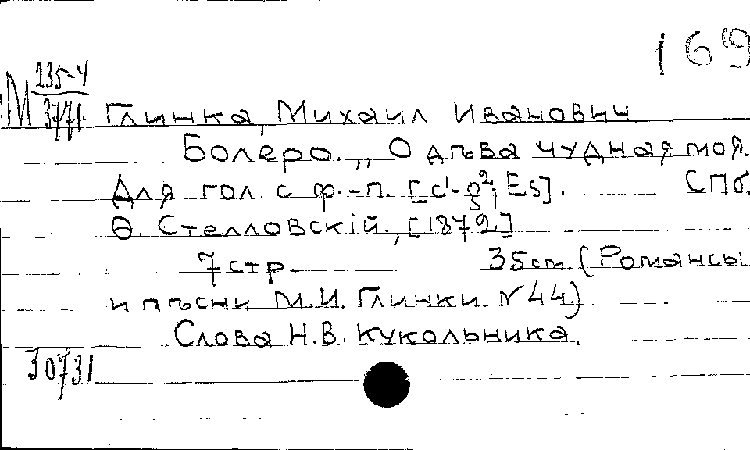 169
М 235-4
3771
Глинка, Михаил Иванович
Болеро. „О дѣва чудная моя.
Для гол. с ф.-п. [c¹-g²; Es]. СПб.
Ѳ. Стелловскій, [1872]
7 стр. 35 cm. (Романсы
и пѣсни М.И. Глинки. N 44)
Слова Н.В. Кукольника.
30731